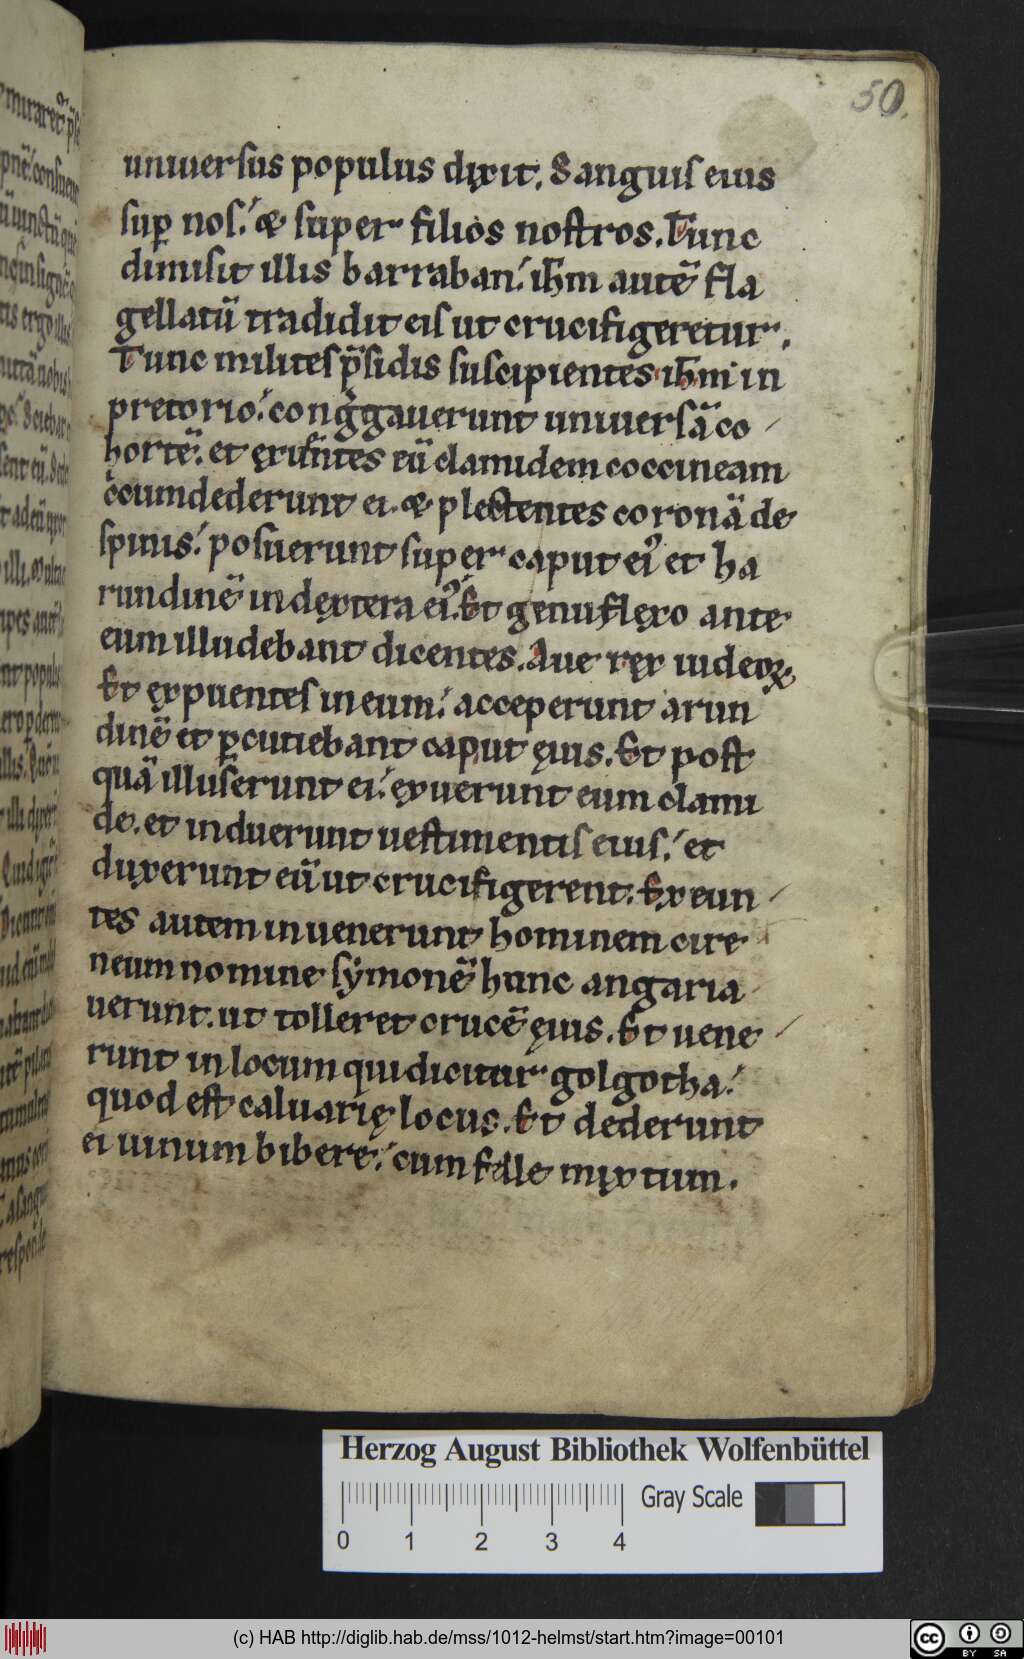 50
uniuersus populus dixit. Sanguis eius
suꝑ nos. & super filios nostros. Tunc
dimisit illis barraban. ihm̄ autē fla
gellatū tradidit eis ut crucifigeretur.
Tunc milites p̄sidis suscipientes ihm̄ in
pretorio. congg̅auerunt uniuersā co
hortē. et exuentes eū clamidem coccineam
ccumdederunt ei. & plectentes coronā de
spinis. posuerunt super caput ei' et ha
rundinē in dextera ei'. Et genuflexo ante
eum illudebant dicentes. Aue rex iudeoꝝ
Et expuentes in eum. acceperunt arun
dinē et ꝑcutiebant caput ęius. Et post
quā illuserunt ei. exuerunt eum clami
de. et induerunt uestimentis eius. et
duxerunt eū ut crucifigerent. Exeun
tes autem inuenerunt hominem cire
neum nomine sẏmonē hunc angaria
uerunt. ut tolleret crucē ęius. Et uene
runt in locum qui dicitur golgotha.
quod est caluarię locus. Et dederunt
ei uinum bibere. cum felle mixtum.
Herzog August Bibliothek Wolfenbüttel
Gray Scale
0 1 2 3 4
(c) HAB http://diglib.hab.de/mss/1012-helmst/start.htm?image=00101
cc BY SA